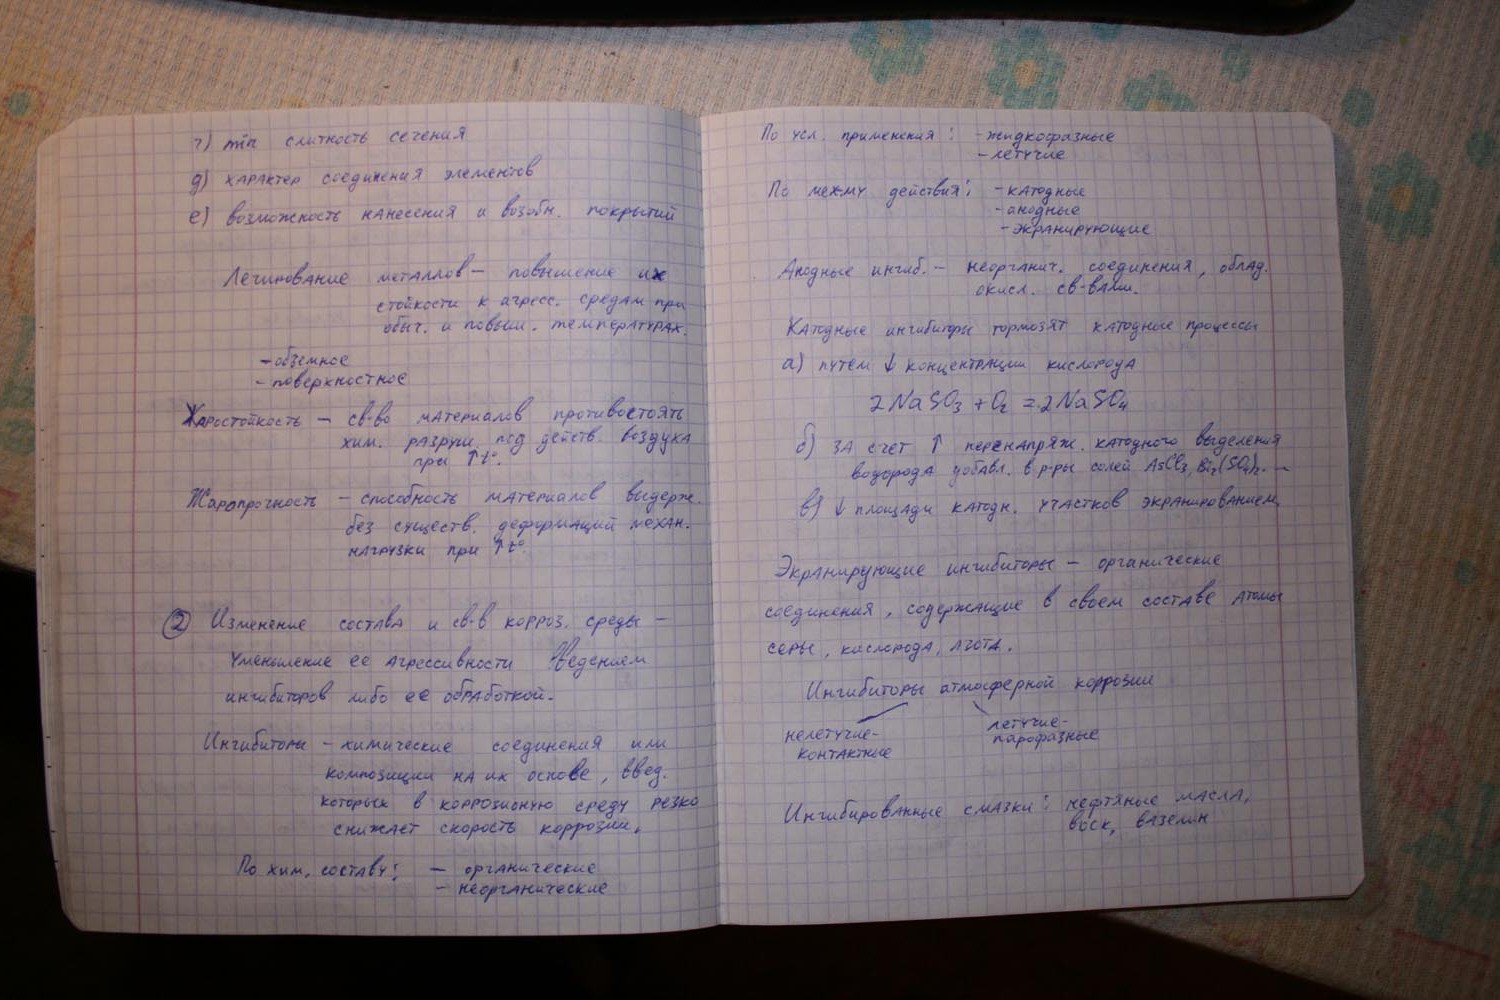 г) min слитность сечения
д) характер соединения элементов
е) возможность нанесения и возобн. покрытий
Легирование металлов – повышение их
стойкости к агресс. средам при
обыч. и повыш. температурах.
- объемное
- поверхностное
Жаростойкость – св-во материалов противостоять
хим. разруш. под действ. воздуха
при ↑t°.
Жаропрочность – способность материалов выдерж.
без существ. деформаций механ.
нагрузки при ↑t°.
② Изменение состава и св-в корроз. среды –
уменьшение ее агрессивности введением
ингибиторов либо ее обработкой.
Ингибиторы – химические соединения или
композиции на их основе, введ.
которых в коррозионую среду резко
снижает скорость коррозии.
По хим. составу: – органические
– неорганические
По усл. применения: - жидкофазные
- летучие
По мех-му действия: - катодные
- анодные
- экранирующие
Анодные ингиб. – неорганич. соединения, облад.
окисл. св-вами.
Катодные ингибиторы тормозят катодные процессы
а) путем ↓ концентрации кислорода
2NaSO3 + O2 = 2NaSO4
б) за счет ↑ перенапряж. катодного выделения
водорода добавл. в р-ры солей AsCl3, Bi2(SO4)2. ...
в) ↓ площади катодн. участков экранированием.
Экранирующие ингибиторы – органические
соединения, содержащие в своем составе атомы
серы, кислорода, азота.
Ингибиторы атмосферной коррозии
нелетучие- летучие-
контактные парофазные
Ингибированные смазки: нефтяные масла,
воск, вазелин